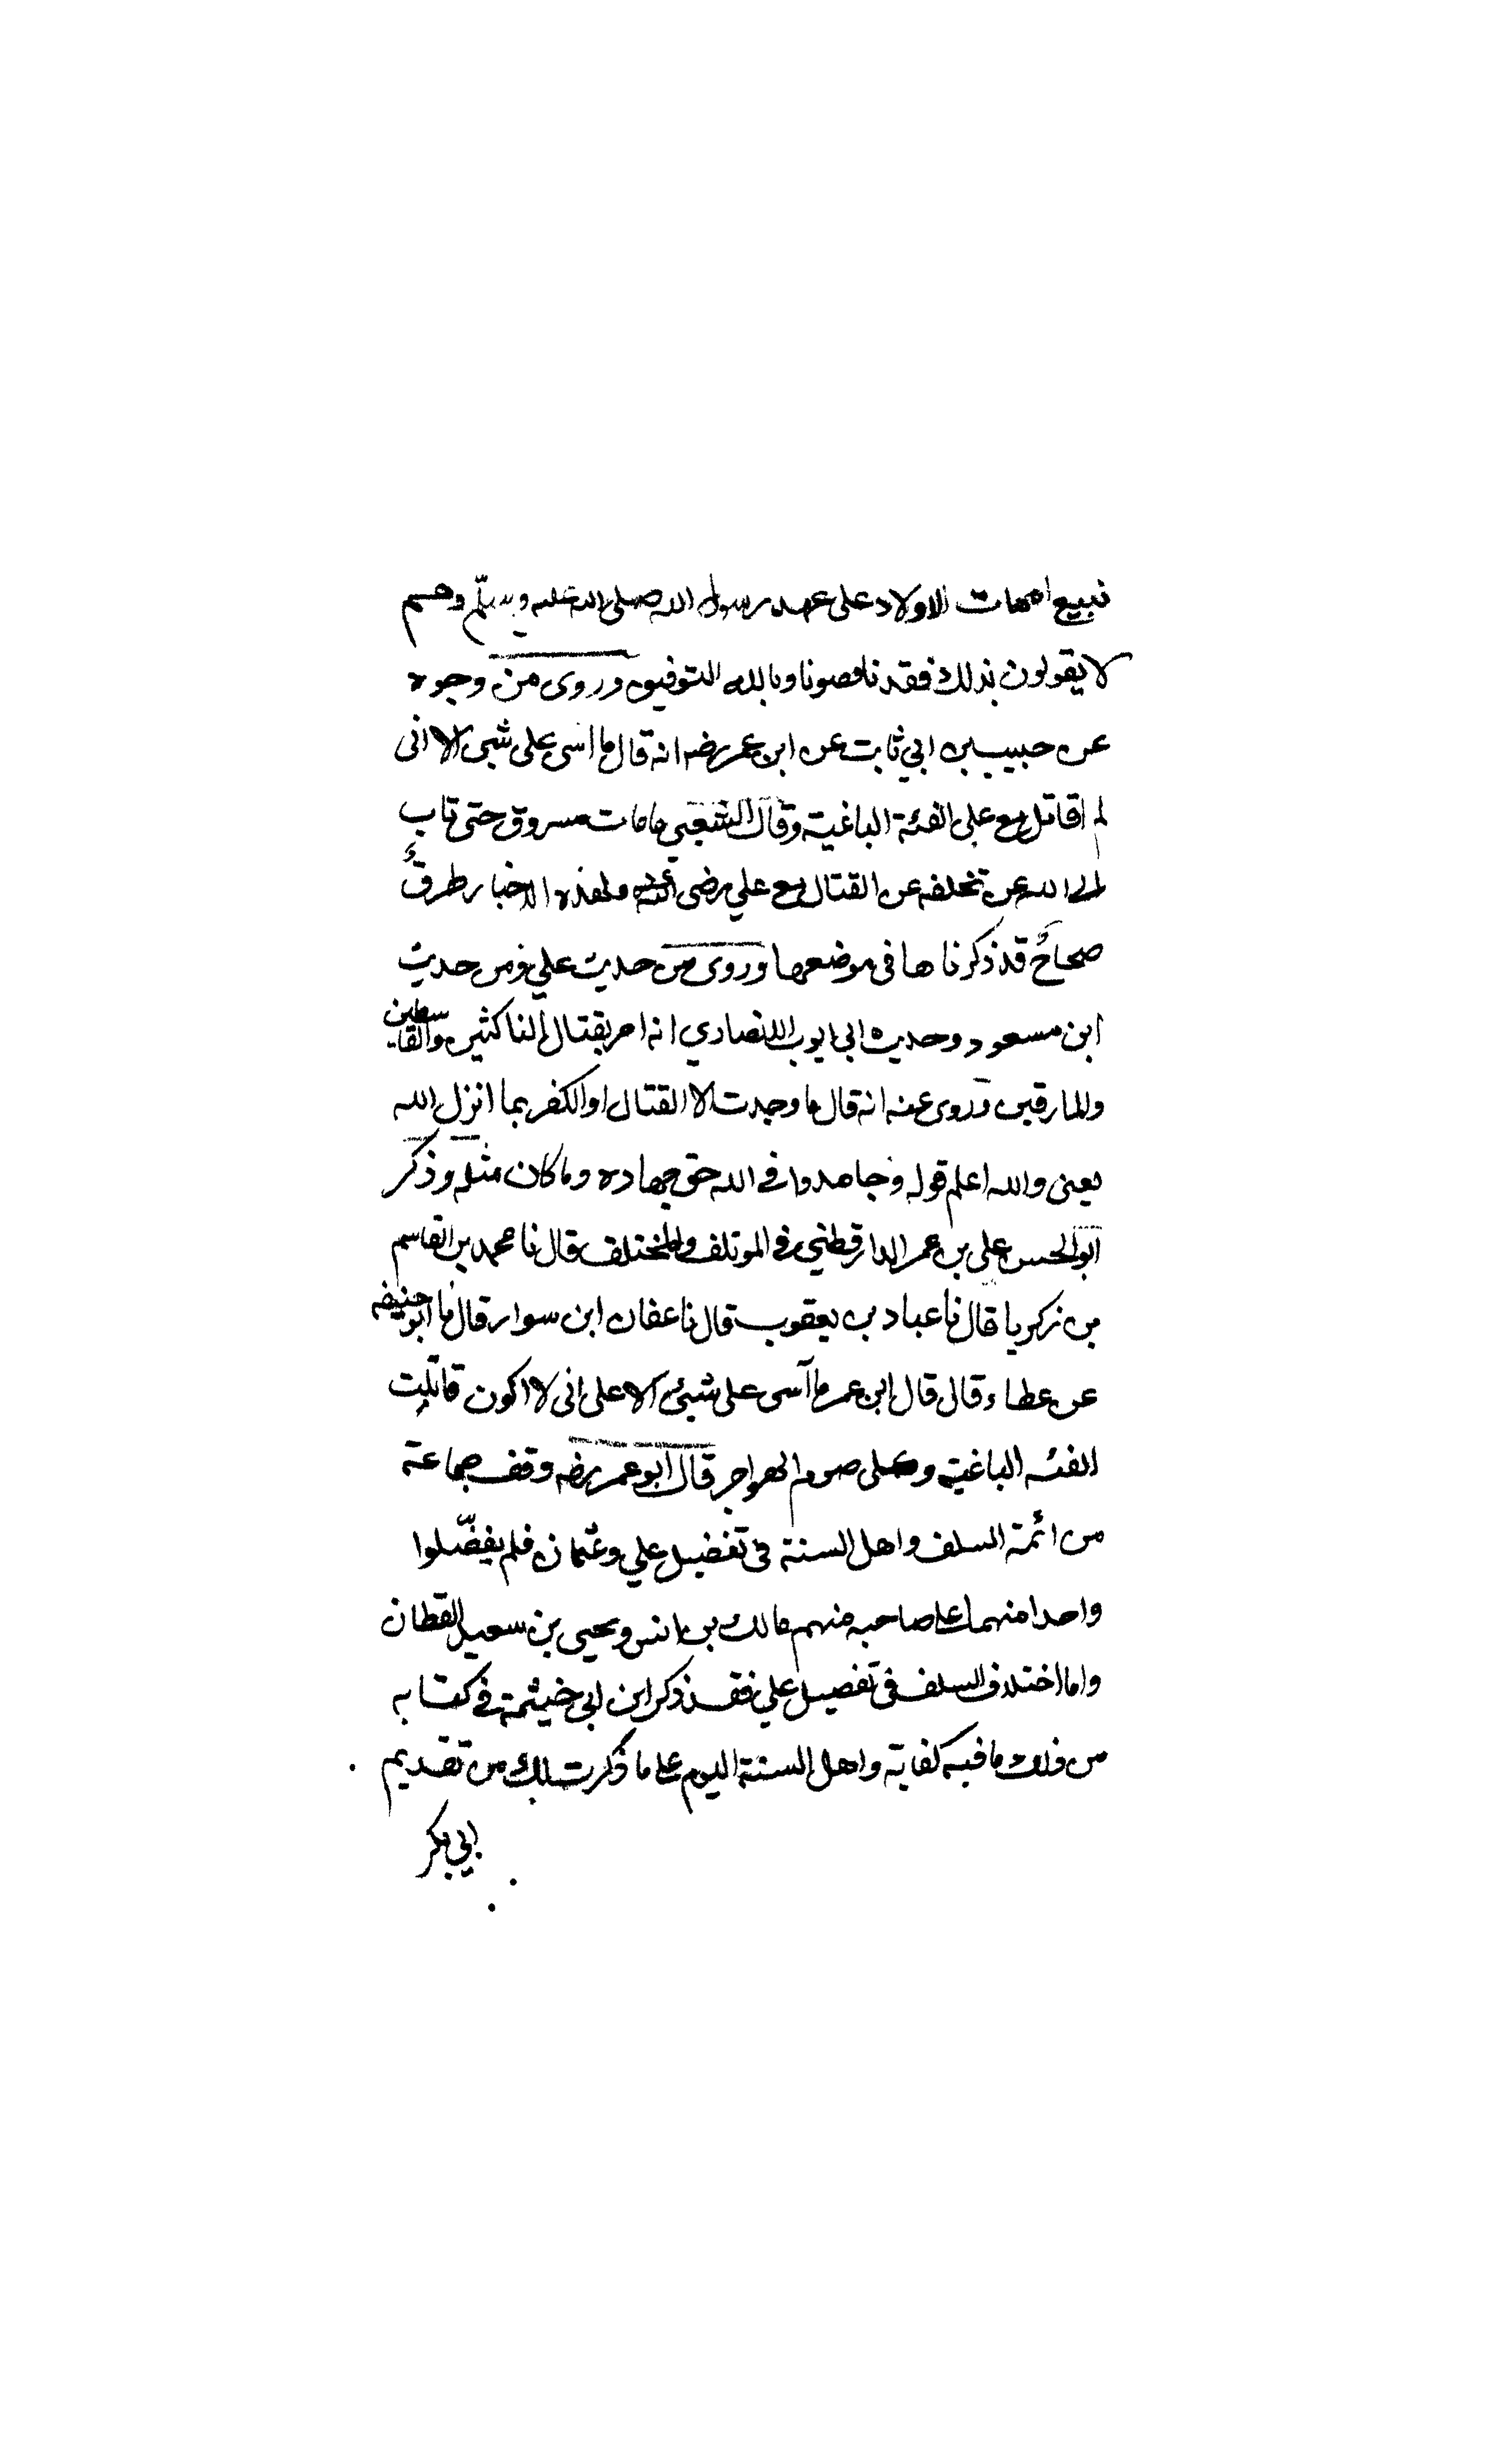 نبيع امهات الاولاد على عهد رسول الله صلى الله عليه وسلّم وهم
لا يقولون بذلك فقد ناقصونا وبالله التوفيق وروى من وجوه
عن حبيب بن ابي ثابت عن ابن عمر رضه انه قال ما اسى على شى الا انى
لم اقاتل مع على الفئة الباغية وقال الشعبي ما مات مسروق حتى تاب
الى الله عن تخلفه عن القتال مع علي رضى الله عنه ولهذه الاخبار طرقٌ
صحاحٌ قد ذكرناها فى موضعها وروى من حديث علي ومن حديث
ابن مسعود وحديث ابى ايوب الانصاري انه امر بقتال الناكثين والقاسطين
والمارقين وروى عنه انه قال ما وجدت الا القتال او الكفر بما انزل الله
يعنى والله اعلم قوله وجاهدوا في الله حق جهاده وما كان مثله وذكر
ابو الحسن على بن عمر الدارقطني في الموتلف والمختلف قال نا محمد بن القاسم
بن زكريا قال نا عباد بن يعقوب قال نا عفان ابن سوار قال نا ابو حنيفه
عن عطاء قال قال ابن عمر ما آسى على شيئ الا على انى لا اكون قاتلت
الفئه الباغية وعلى صوم الهواجر قال ابو عمر رضه وقف جماعة
من ائمة السلف واهل السنة فى تفضيل علي وعثمان فلم يفضّلوا
واحدا منهما على صاحبه منهم مالك بن انس ويحيى بن سعيد القطان
واما اختلاف السلف فى تفصيل علي فقد ذكر ابن ابى خيثمة في كتابه
من ذلك ما فيه كفاية واهل السنة اليوم على ما ذكرت لك من تقديم
ابي بكر